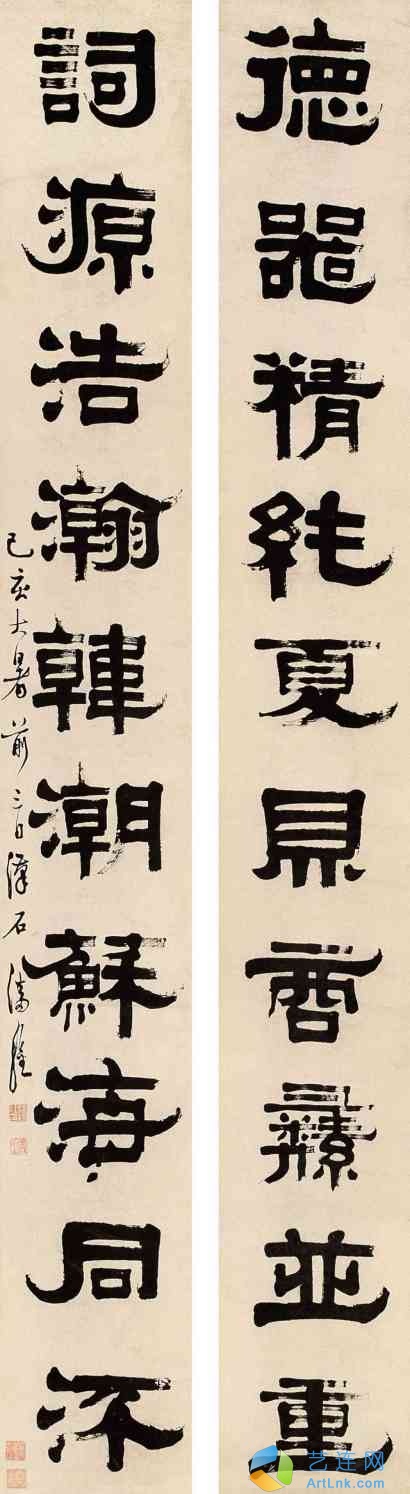 德器精純夏鼎商彝並重
詞源浩瀚韓潮蘇海同
己亥大暑前三日
艺连网
ArtLnk.com